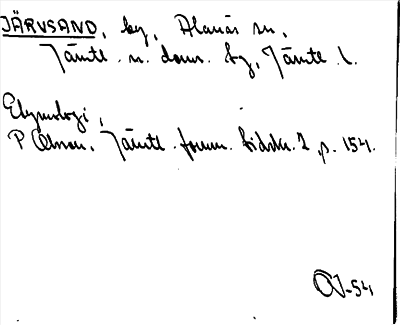 JÄRVSAND, by, Alanäs sn,
Jämtl. n. doms. by, Jämtl. l.
Etymologi,
P Olsson, Jämtl. fornm. tidskr. 2, p. 154.
-54